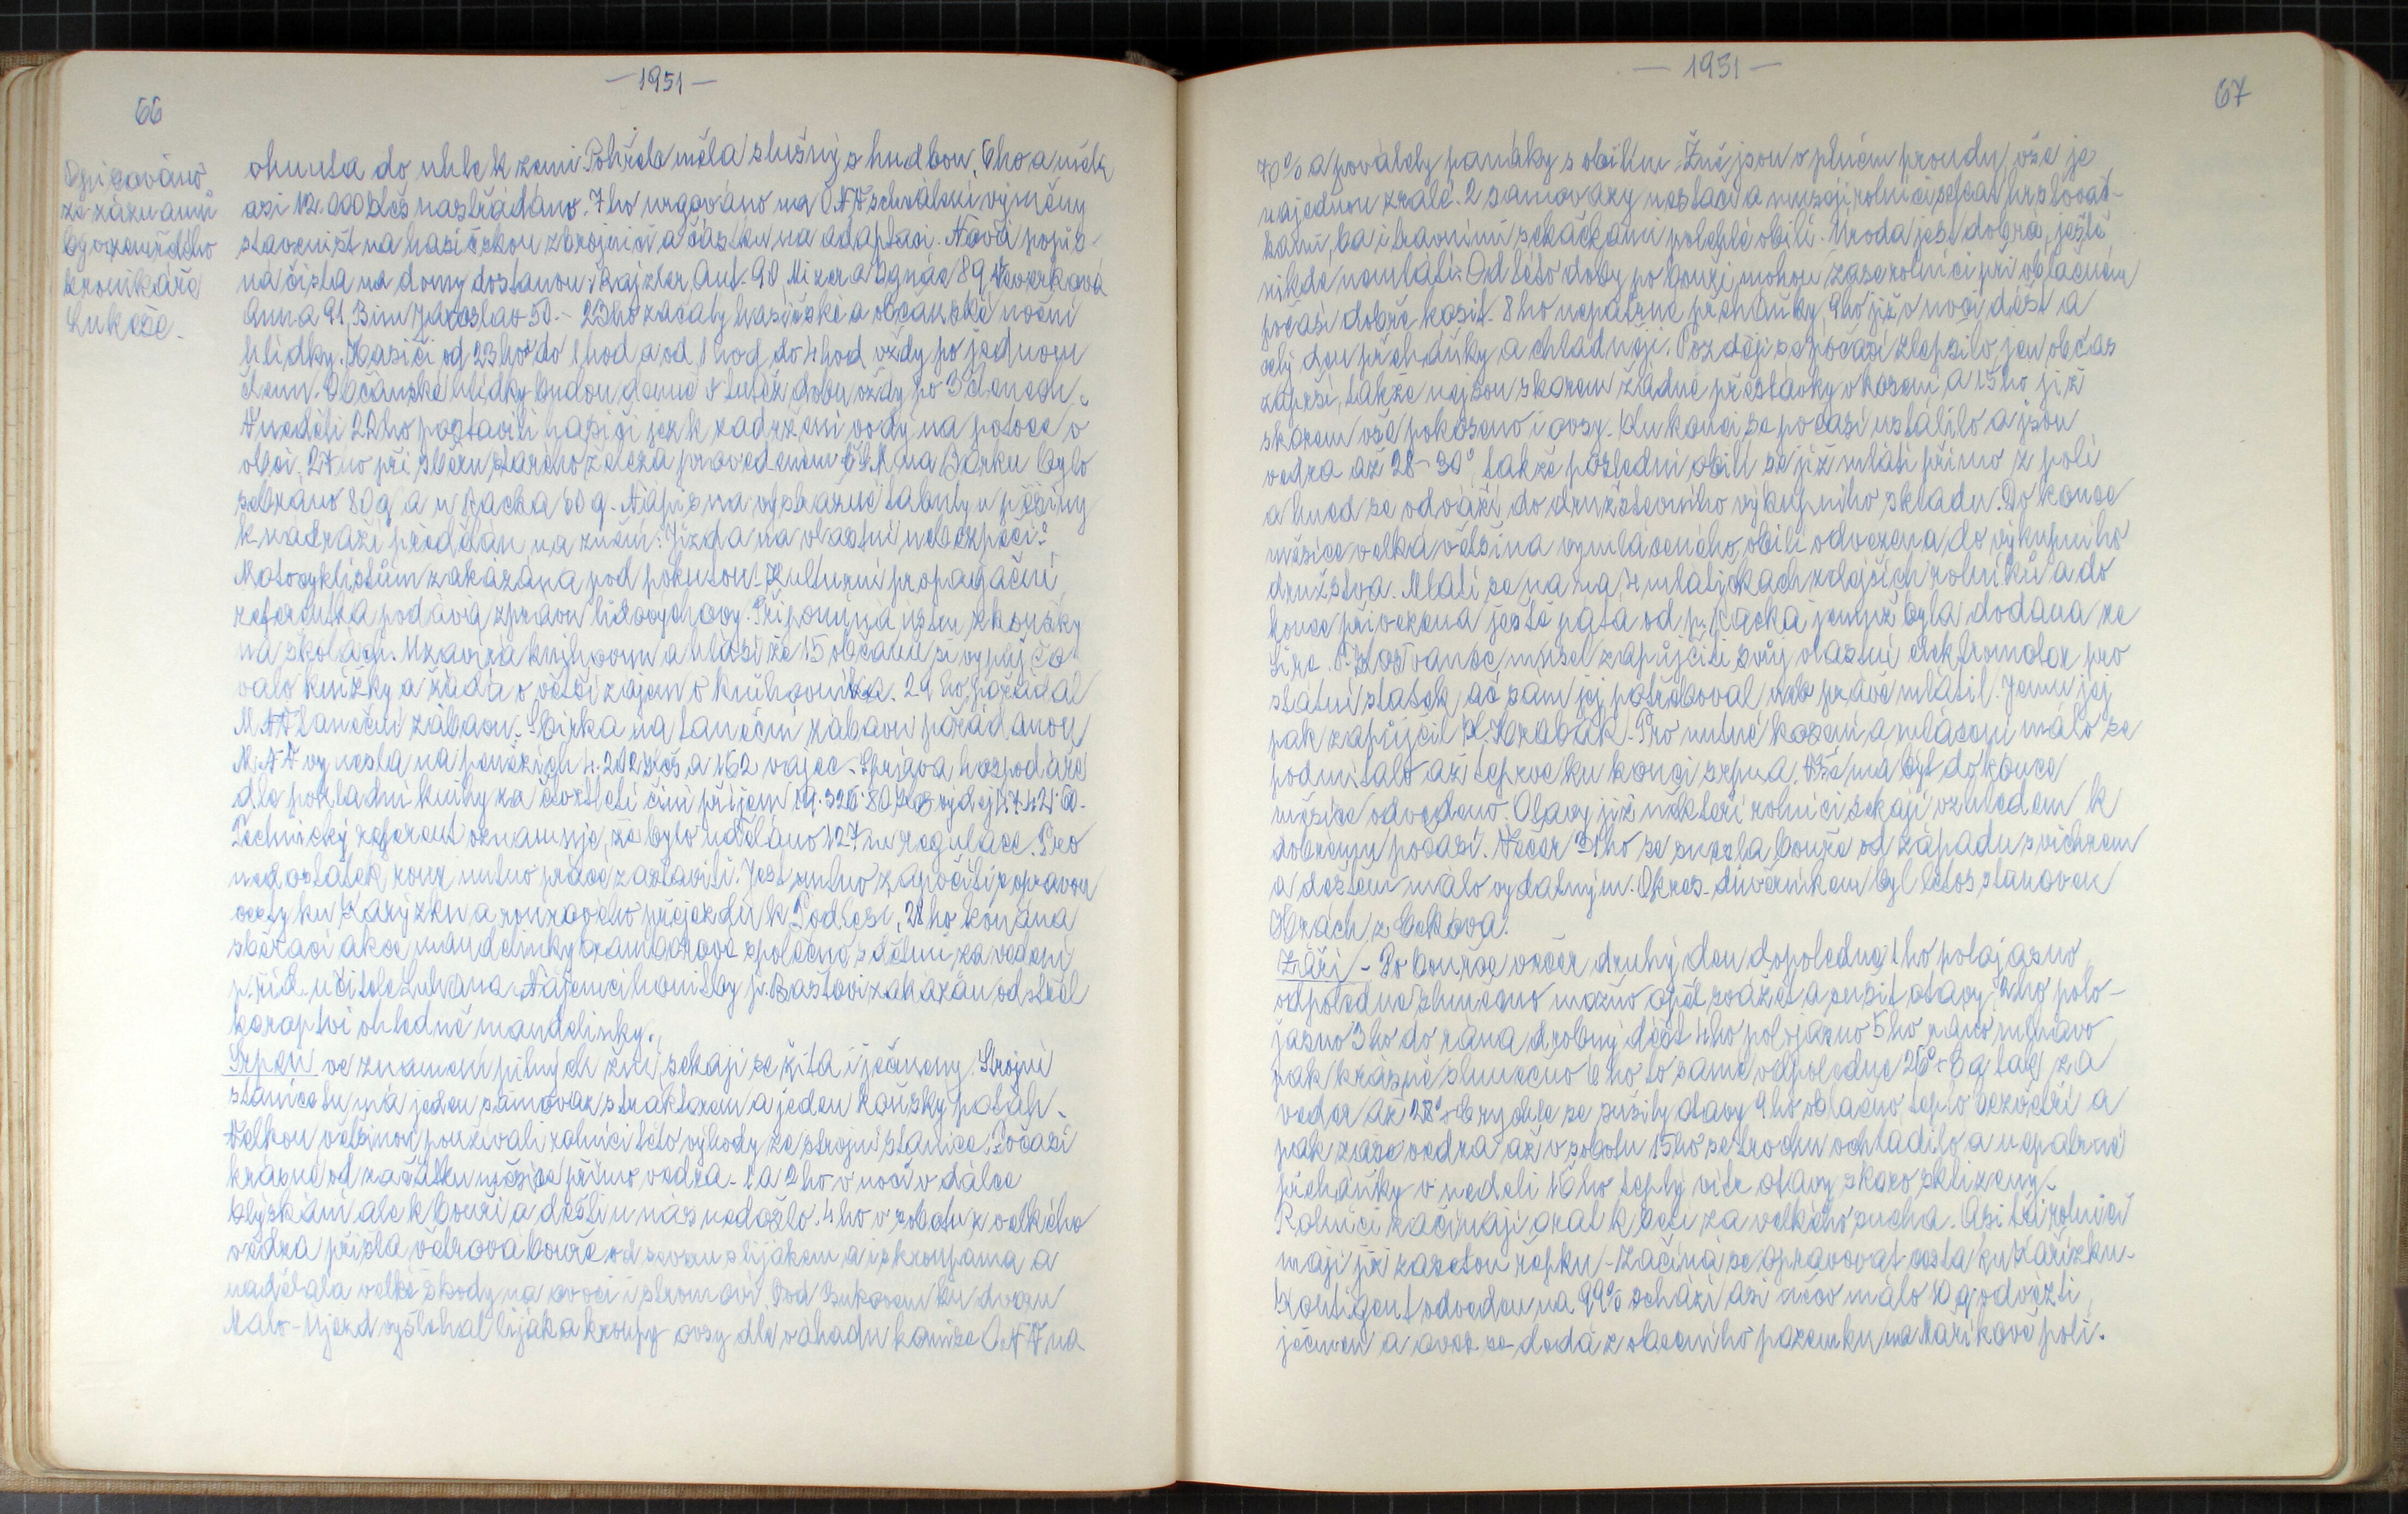 66
— 1951 —
Opisováno
ze záznamů
býv. zemřelého
kronikáře
Lukeše.
do uhle k zemi. Pohřeb měla slušný s hudbou. 6ho a měla
asi 12.000 Kčs nastřádáno. 7ho urgováno na ONV schválení výměny
stavenišť na hasičskou zbrojnici a částku na adaptaci. Nová popis-
ná čísla na domy dostanou: Kajzler Ant. 90 Mizera Ignác 89 Kovorkova
Anna 91 Bím Jaroslav 50. - 23ho začaly hasičské a občanské noční
hlídky. Hasiči od 23 hod do 1 hod a od 1 hod do 4 hod vždy po jednom
členu. Občanské hlídky budou denně v tutéž dobu vždy po 3 členech.
V neděli 22ho postavili hasiči jez k zadržení vody na potoce v
obci. 27ho při sběru starého železa provedeném ČSM na Bárku bylo
sebráno 80 q a u Vacka 60 q. Nápis na výstražné tabulky u pěšiny
k nádraží předělán na znění: Jízda na vlastní nebezpečí.
Motocyklistům zakázána pod pokutou. Kulturní propagační
referentka podává zprávu lidovýchovy. Připomíná ústní zkoušky
na školách. Uzavírá knihovnu a hlásí že 15 občanů si vypůjčo-
valo knížky a žádá o větší zájem o knihovnu. 29ho pořádal
MNV taneční zábavu. Sbírka na taneční zábavu pořádanou
MNV vynesla na penězích 4.202 Kčs a 162 vajec. Správa hospodáře
dle pokladní knihy za čtvrtletí činí příjem 19.326·80 Kčs výdej 17.421·60.
Technický referent oznamuje, že bylo uděláno 127 m regulace. Pro
nedostatek rour nutno práce zastaviti. Jest nutno započíti s opravou
cesty ku Karýzku a rourového přejezdu k Podlesí. 28ho konána
sběrací akce mandelinky bramborové společně s dětmi za vedení
p. říd. učitele Luhana. Nájemci honitby p. Baštovi zakázán odstřel
koroptví ohledně mandelinky.
Srpen ve znamení pilných žní, sekají se žita i ječmeny. Strojní
stanice tu má jeden samovaz s traktorem a jeden koňský potah.
Velkou většinou používali rolníci této výhody ze strojní stanice. Počasí
krásné od začátku měsíce přímo vedra. 1 a 2ho v noci v dálce
blýskání ale k bouři a dešti u nás nedošlo. 4ho v sobotu z velkého
vedra přišla větrová bouře od severu s lijákem a i s kroupama a
nadělala velké škody na ovoci i stromoví. Pod Bukovem ku dvoru
Malo-Újezd vyšlehal liják a kroupy ovsy dle odhadu komise ONV na
— 1951 —
67
70% a poválely panáky s obilím. Žně jsou v plném proudu, vše je
najednou zralé. 2 samovazy nestačí a musejí rolníci sekat hrsťovač-
kami, ba i travními sekačkami polehlé obilí. Úroda jest dobrá, ještě
nikdo nemlátí. Od této doby po bouři mohou zase rolníci při oblačném
počasí dobře kosit. 8ho nepatrné přeháňky, 9ho již v noci déšť a
celý den přeháňky a chladněji. Později se počasí zlepšilo, jen občas
zaprší, takže nejsou skorem žádné přestávky v kosení a 15ho již
skorem vše pokoseno i ovsy. Ku konci se počasí ustálilo a jsou
vedra až 28-30°, takže poslední obilí se již mlátí přímo z polí
a hned se odváží do družstevního výkupního skladu. Do konce
měsíce velká většina vymláceného obilí odvezena do výkupního
družstva. Mlátí se na na 4 mlátičkách zdejších rolníků a do
konce přivezena ještě pátá od p. Vacka jemuž byla dodána ze
Sirá. P. Kostvanec musel zapůjčiti svůj vlastní elektromotor pro
státní statek, ač sám jej potřeboval neb právě mlátil. Jemu jej
pak zapůjčil Al. Hrabák. Pro nutné kosení a mlácení málo se
podmítalo až teprve ku konci srpna. Vše má být do konce
měsíce odvedeno. Otavy již někteří rolníci sekají vzhledem k
dobrému počasí. Večer 31ho se snesla bouře od západu s vichrem
a deštěm málo vydatným. Okres. důvěrníkem byl letos stanoven
Hrach z Cekova.
Září - Po bouřce večer druhý den dopoledne 1ho polojasno
odpoledne slunečno možno opět svážet a sušit otavy. 2ho polo-
jasno 3ho do rána drobný déšť 4ho polojasno 5ho ráno mlhavo
pak krásně slunečno 6ho to samé odpoledne 26° C a tak za
veder až 28° C rychle se sušily otavy 9ho oblačno teplo bezvětří a
pak zase vedra až v sobotu 15ho se trochu ochladilo a nepatrné
přeháňky v neděli 16ho teplý vítr otavy skoro sklizeny.
Rolníci začínají orat k setí za velkého sucha. Asi tři rolníci
mají již zasetou řepku. Začíná se opravovat cesta ku Kařízku.
Kontigent odveden na 99% schází asi něco málo 10 q odvézti
ječmen a oves se dodá z obecního pozemku na Maříkově poli.